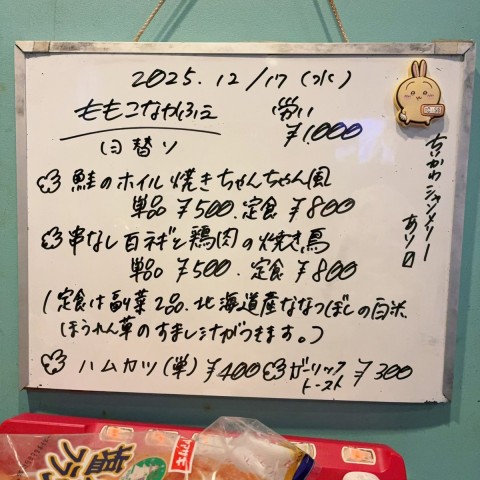 2025.12/17(水)
ももこなかふぇ
労い
¥1,000
日替り
鮭のホイル焼きちゃんちゃん風
単品 ¥500.定食 ¥800
串なし白ネギと鶏肉の焼き鳥
単品 ¥500. 定食 ¥800
(定食は副菜2品.北海道産ななつぼしの白米
ほうれん草のすまし汁がつきます。)
ハムカツ(単) ¥400 ガーリックトースト ¥300
ちいかわシャンメリー
あり〼